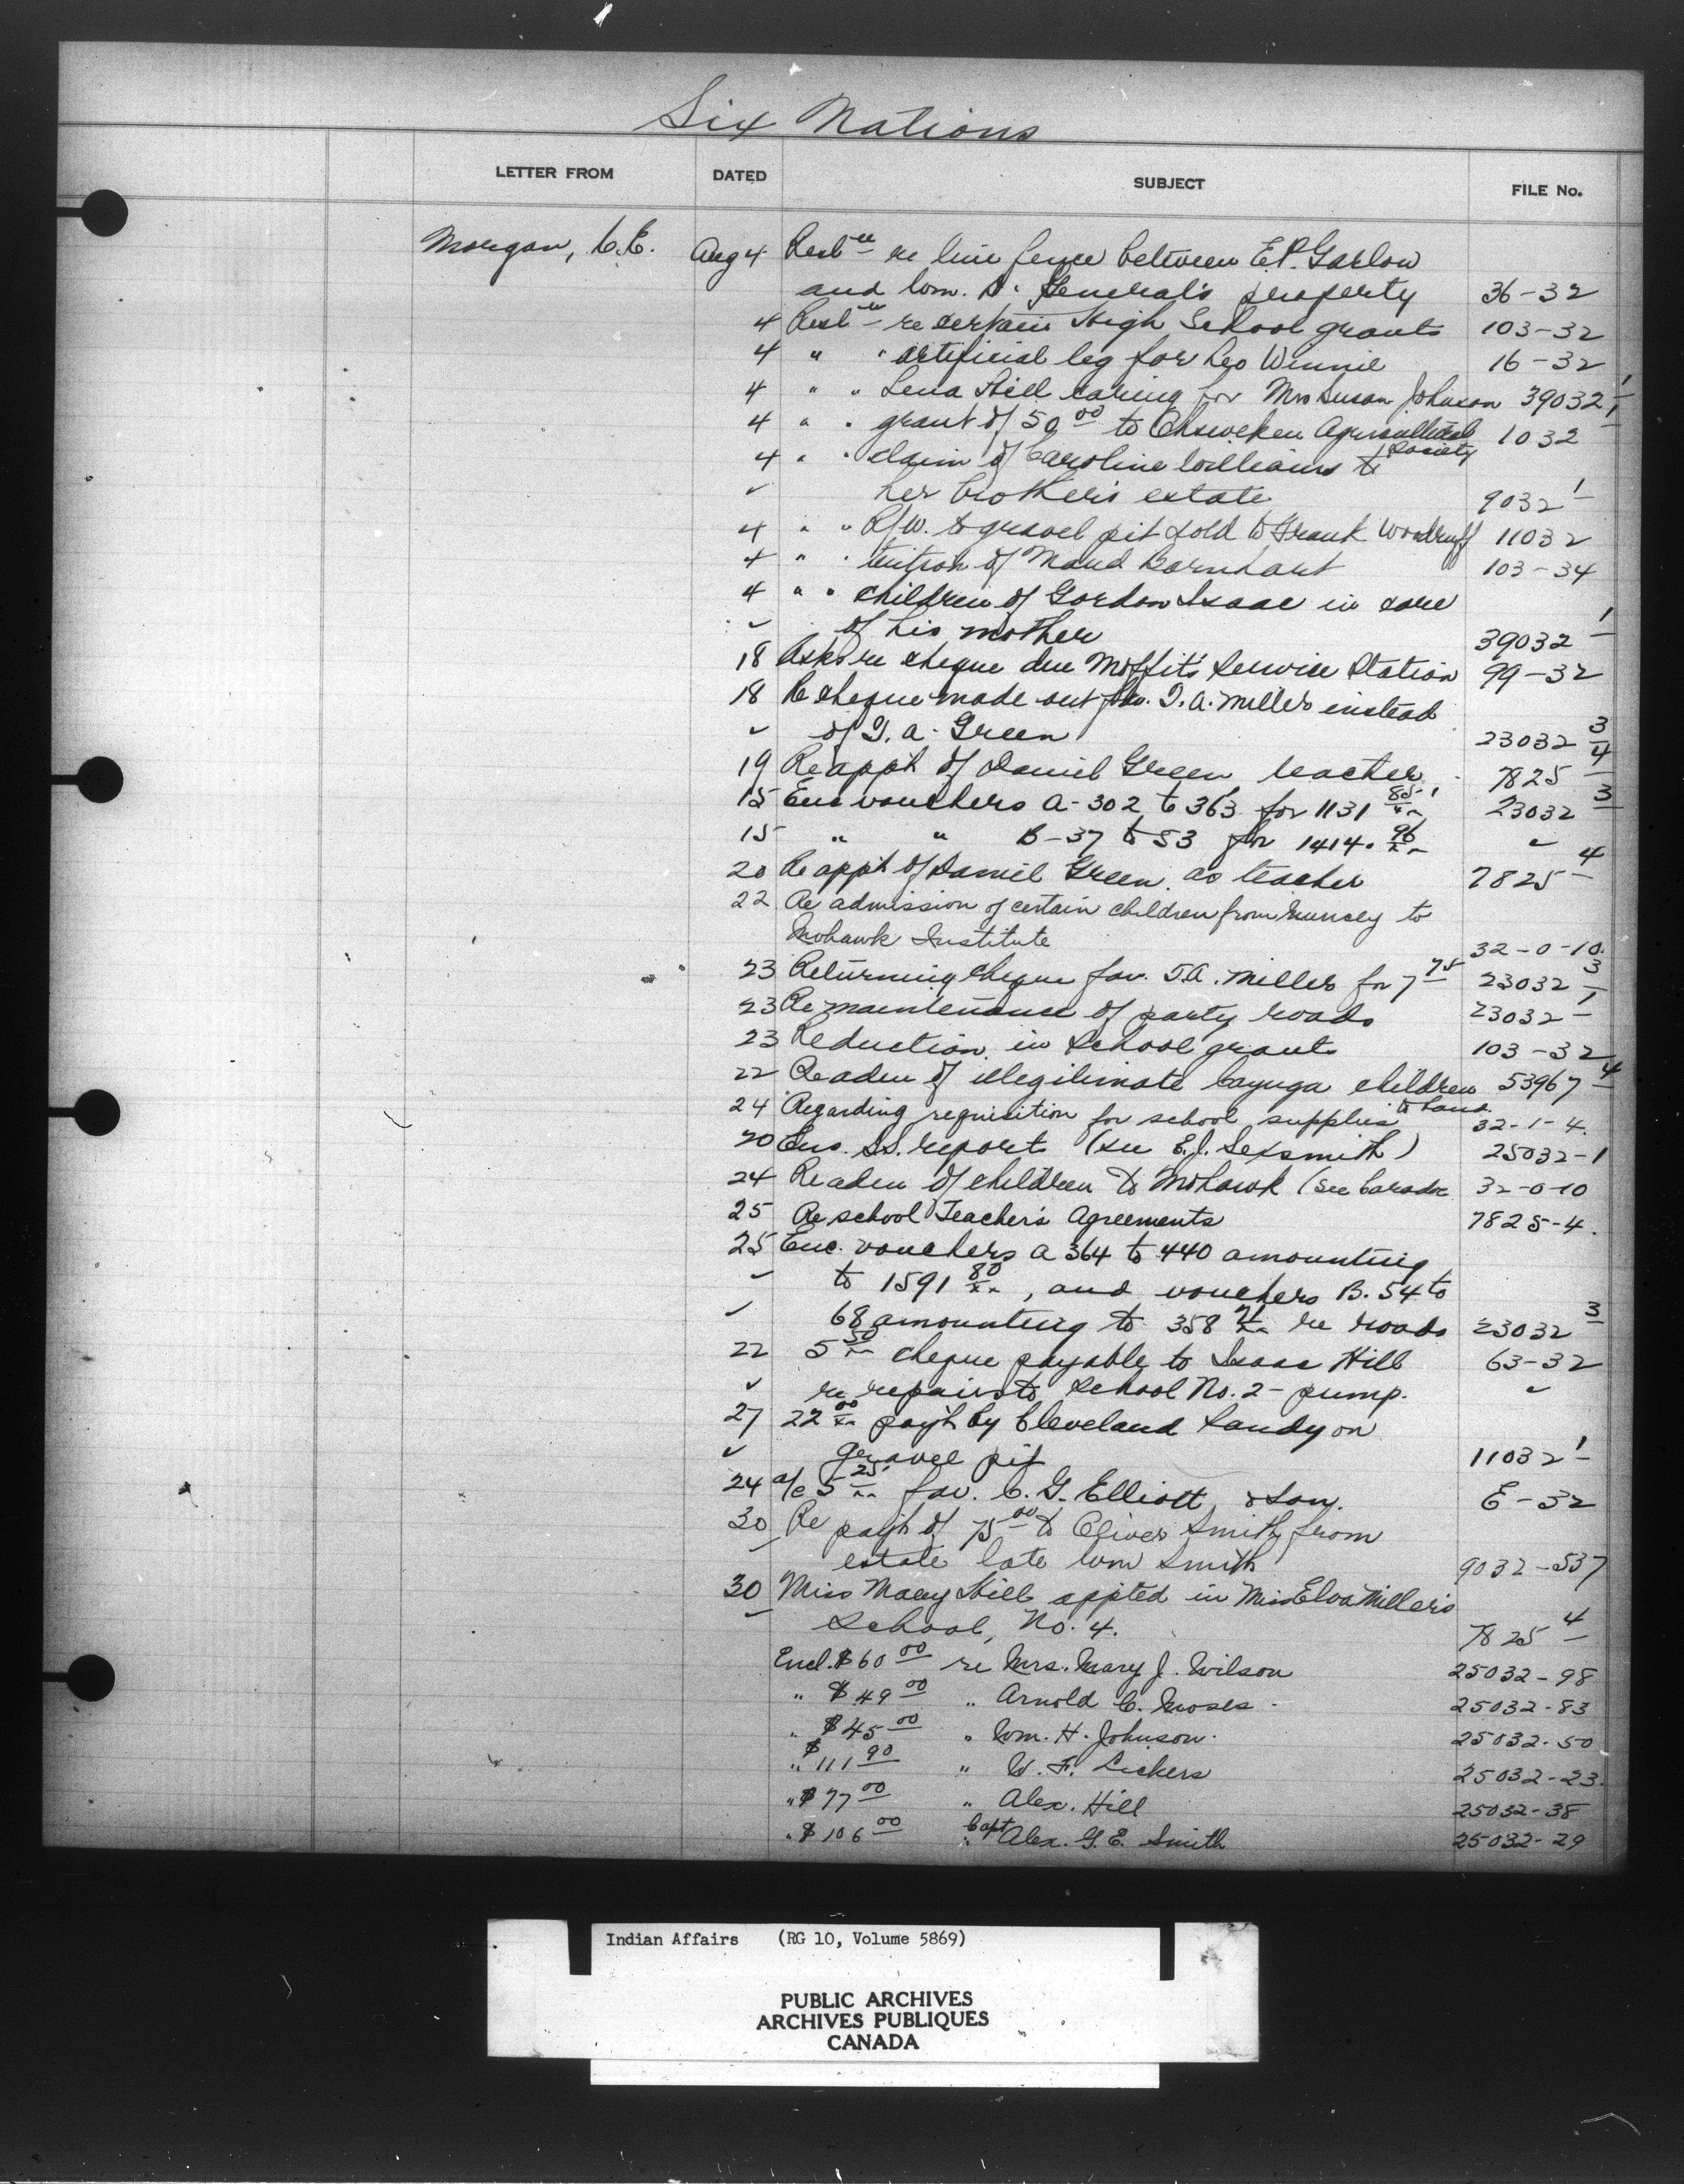 Six Nations
LETTER FROM DATED SUBJECT FILE No.
Morgan, C.E. Aug 4 re line fence between E.P. Garlow
and Wm. D. General's property 36-32
4 re certain High School grants 103-32
4 " " artificial leg for Leo Winnie 16-32
4 " " Lena Hill caring for Mrs Susan Johnson 39032 1
4 " " grant of 50 00 to Ohsweken Agricultural Society 1032
4 " " claim of Caroline Williams to
✓ her brother's estate 9032 1
4 " " R/W. to gravel pit sold to Frank Woodruff 11032
4 " " tuition of Maud Barnhart 103-34
4 " " children of Gordon Isaac in care
✓ of his mother 39032 1
18 Asks re cheque due Moffit's Service Station 99-32
18 Re cheque made out fav. T.A. Miller instead
✓ of T.A. Green 23032 3
19 Re appt of Daniel Green, teacher 7825 4
15 Enc vouchers A-302 to 363 for 1131 85/xx 23032 3
15 " " B-37 to 53 for 1414. 96/xx ✓
20 Re appt of Daniel Green as teacher 7825 4
22 Re admission of certain children from Muncey to
Mohawk Institute 32-0-10.
23 Returning cheque fav. T.A. Miller for 7 75 23032 3
23 Re maintenance of party roads 23032 1
23 Reduction in School grants 103-32
22 Re adm of illegitimate Cayuga children to band. 53967 4
24 Regarding requisition for school supplies 32-1-4.
20 Enc. S.S. report (see E.J. Sexsmith) 25032-1
24 Re adm of children to Mohawk (see Caradoc 32-0-10
25 Re school Teacher's Agreements 7825-4.
25 Enc. vouchers A 364 to 440 amounting
✓ to 1591 80/xx, and vouchers B. 54 to
✓ 68 amounting to 358 re roads 23032 3
22 5 50/xx cheque payable to Isaac Hill 63-32
✓ re repairs to School No. 2 - pump. ✓
27 22 00/xx pay't by Cleveland Sandy on
✓ gravel pit 11032 1
24 a/c 5 25/xx fav. C.G. Elliott & Son. E-32
30 Re pay't of 75 00 to Oliver Smith from
estate late Wm Smith 9032-537
30 Miss Mary Hill appted in Miss Elva Miller's
School, No. 4. 7825 4
Encl. $60 00 re Mrs. Mary J. Wilson 25032-98
" $49 00 " Arnold C. Moses 25032-83
" $45 00 " Wm. H. Johnson. 25032-50
" $111 90 " W. F. Lickers 25032-23.
" $77 00 " Alex. Hill 25032-38
" $106 00 " Capt Alex. G.E. Smith 25032-29
Indian Affairs (RG 10, Volume 5869)
PUBLIC ARCHIVES
ARCHIVES PUBLIQUES
CANADA